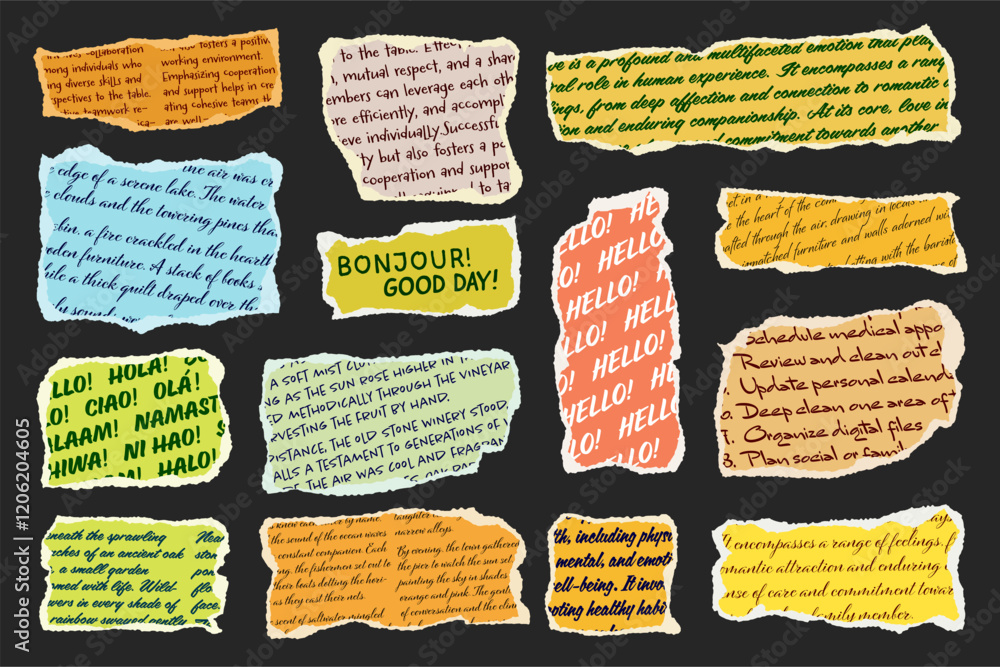 collaboration
mong individuals who
ng diverse skills and
spectives to the table.
teamwork re-
ica-
also fosters a positiv
working environment.
Emphasizing cooperation
and support helps in cre
ating cohesive teams th
are well-
to the table. Effec
, mutual respect, and a shar
embers can leverage each oth
re efficiently, and accompl
eve individually.Successfu
ty but also fosters a po
cooperation and suppor
to ta
ve is a profound and multifaceted emotion that play
al role in human experience. It encompasses a rang
ings, from deep affection and connection to romantic
ion and enduring companionship. At its core, love in
commitment towards another
the air was cr
edge of a serene lake. The water
e clouds and the towering pines tha
bin, a fire crackled in the hearth
oden furniture. A stack of books s
ile a thick quilt draped over th
ly sound
BONJOUR!
GOOD DAY!
HELLO! HE
ELLO! HELLO!
O! HELLO!
HELLO!
LLO! HELL
HELLO!
ELLO! HE
O! HELLO!
HELLO! HE
LLO! HELLO!
et in a
the heart of the com
afted through the air, drawing in locals
mismatched furniture and walls adorned wit
with the barista
LLO! HOLA! B
O! CIAO! OLÁ!
ALAAM! NAMAST
HIWA! NI HAO! S
M! HALO!
A SOFT MIST CL
NG AS THE SUN ROSE HIGHER IN TH
ED METHODICALLY THROUGH THE VINEYAR
RVESTING THE FRUIT BY HAND.
DISTANCE, THE OLD STONE WINERY STOOD,
ALLS A TESTAMENT TO GENERATIONS OF W
E THE AIR WAS COOL AND FRAGRAN
OAK BAR
Schedule medical appo
Review and clean out cl
Update personal calenda
Deep clean one area of
Organize digital files
3. Plan social or famil
neath the sprawling
ches of an ancient oak
, a small garden
med with life. Wild
wers in every shade of
rainbow swayed gently
Plea
ston
po
fl
face.
knew each other by name.
the sound of the ocean waves
constant companion. Each
g, the fishermen set out to
heir boats dotting the hori-
as they cast their nets.
scent of saltwater mingled
laughter
narrow alleys.
By evening, the town gathered
the pier to watch the sun set
painting the sky in shades
orange and pink. The gentl
of conversation and the clin
th, including physi
mental, and emoti
ell-being. It invo
oting healthy habi
encompasses a range of feelings, f
mantic attraction and enduring
nse of care and commitment towar
family member.
Adobe Stock
#1206204605